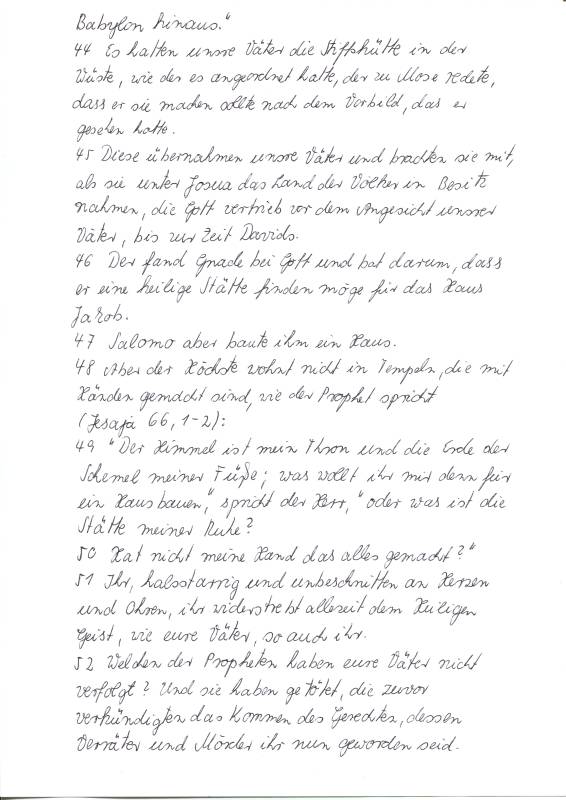 Babylon hinaus."
44 Es hatten unsre Väter die Stiftshütte in der
Wüste, wie der es angeordnet hatte, der zu Mose redete,
dass er sie machen sollte nach dem Vorbild, das er
gesehen hatte.
45 Diese übernahmen unsre Väter und brachten sie mit,
als sie unter Josua das Land der Völker in Besitz
nahmen, die Gott vertrieb vor dem Angesicht unsrer
Väter, bis zur Zeit Davids.
46 Der fand Gnade bei Gott und bat darum, dass
er eine heilige Stätte finden möge für das Haus
Jakob.
47 Salomo aber baute ihm ein Haus.
48 Aber der Höchste wohnt nicht in Tempeln, die mit
Händen gemacht sind, wie der Prophet spricht
(Jesaja 66, 1-2):
49 "Der Himmel ist mein Thron und die Erde der
Schemel meiner Füße; was wollt ihr mir denn für
ein Haus bauen," spricht der Herr, "oder was ist die
Stätte meiner Ruhe?
50 Hat nicht meine Hand das alles gemacht?"
51 Ihr, halsstarrig und unbeschnitten an Herzen
und Ohren, ihr widerstrebt allezeit dem Heiligen
Geist, wie eure Väter, so auch ihr.
52 Welchen der Propheten haben eure Väter nicht
verfolgt? Und sie haben getötet, die zuvor
verkündigten das Kommen des Gerechten, dessen
Verräter und Mörder ihr nun geworden seid.